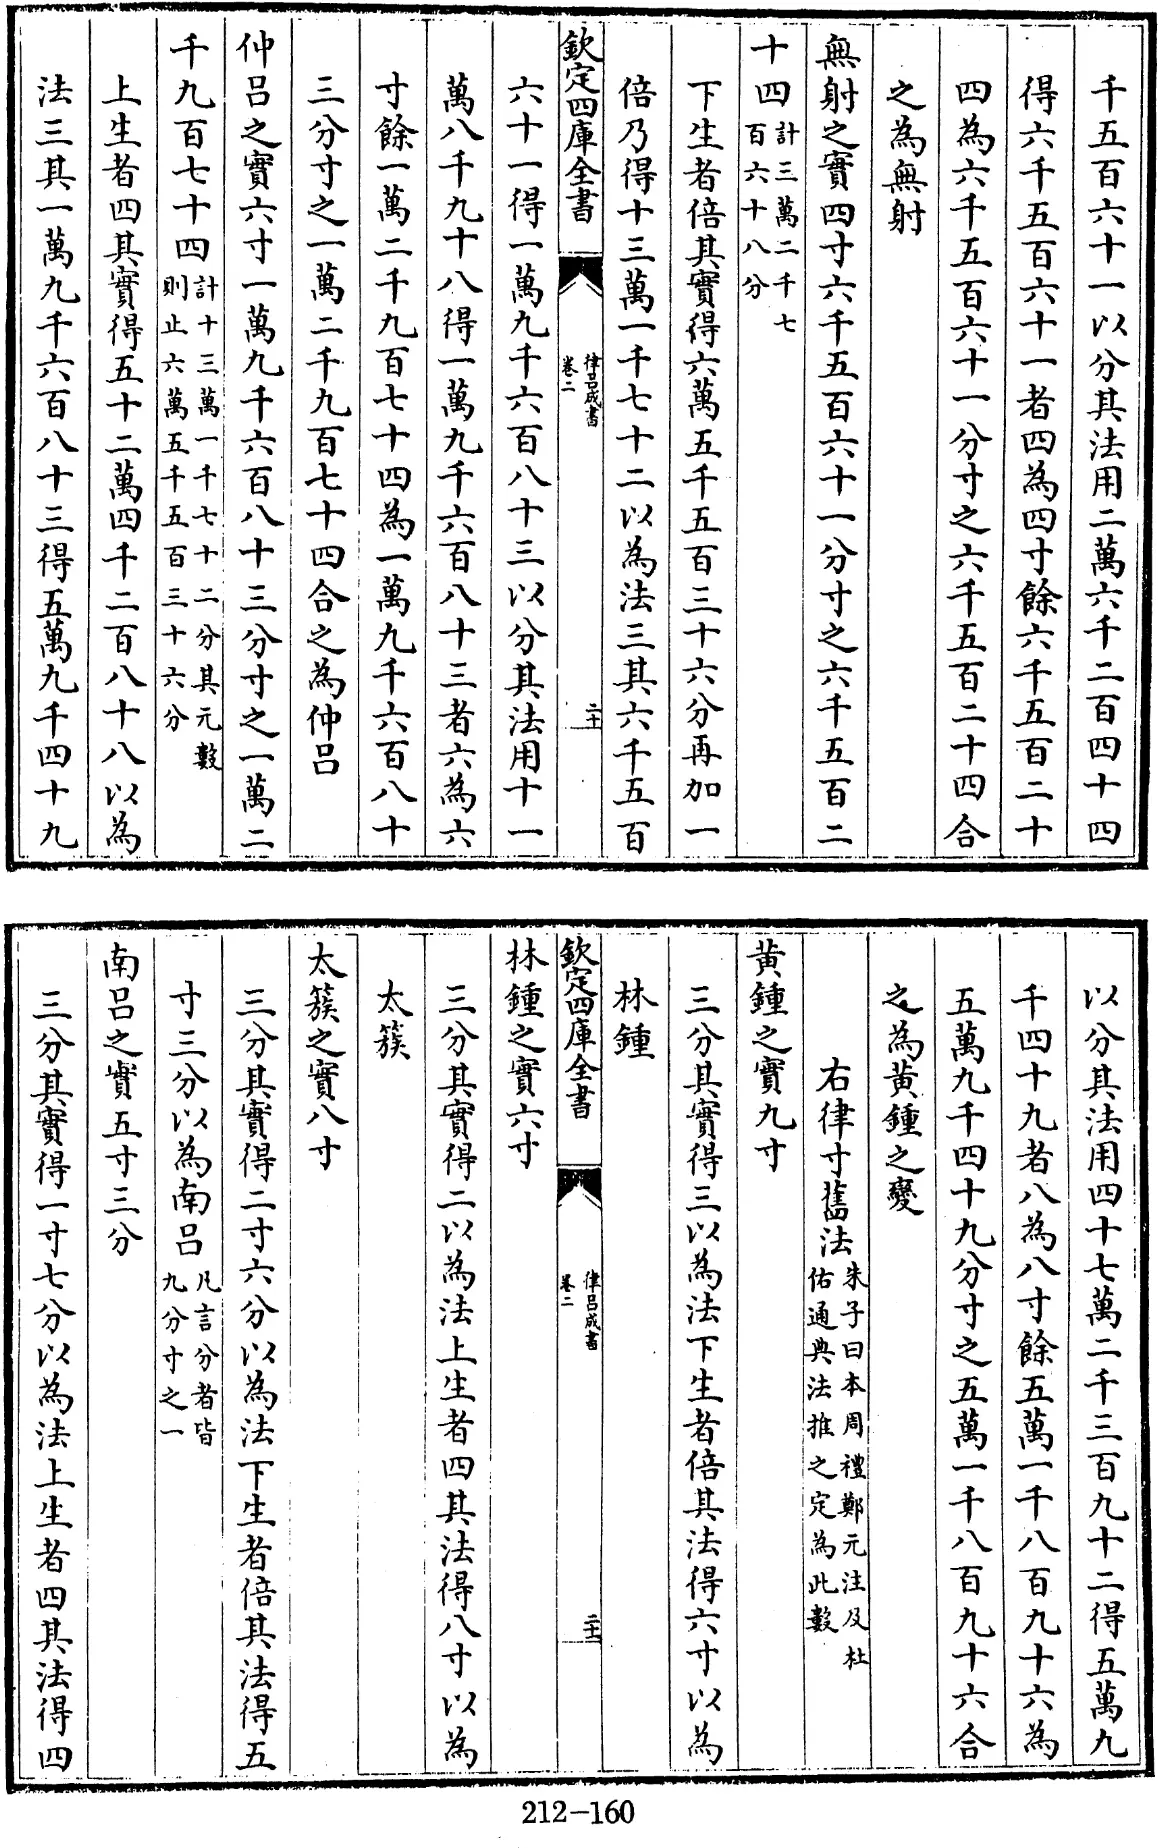 千五百六十一以分其法用二萬六千二百四十四
得六千五百六十一者四為四寸餘六千五百二十
四為六千五百六十一分寸之六千五百二十四合
之為無射
無射之實四寸六千五百六十一分寸之六千五百二
十四計三萬二千七
百六十八分
下生者倍其實得六萬五千五百三十六分再加一
倍乃得十三萬一千七十二以為法三其六千五百
欽定四庫全書
律呂成書
卷二
二十
六十一得一萬九千六百八十三以分其法用十一
萬八千九十八得一萬九千六百八十三者六為六
寸餘一萬二千九百七十四為一萬九千六百八十
三分寸之一萬二千九百七十四合之為仲呂
仲呂之實六寸一萬九千六百八十三分寸之一萬二
千九百七十四計十三萬一千七十二分其元數
則止六萬五千五百三十六分
上生者四其實得五十二萬四千二百八十八以為
法三其一萬九千六百八十三得五萬九千四十九
以分其法用四十七萬二千三百九十二得五萬九
千四十九者八為八寸餘五萬一千八百九十六為
五萬九千四十九分寸之五萬一千八百九十六合
之為黃鍾之變
右律寸舊法朱子曰本周禮鄭元注及杜
佑通典法推之定為此數
黃鍾之實九寸
三分其實得三以為法下生者倍其法得六寸以為
林鍾
欽定四庫全書
律呂成書
卷二
二十一
林鍾之實六寸
三分其實得二以為法上生者四其法得八寸以為
太簇
太簇之實八寸
三分其實得二寸六分以為法下生者倍其法得五
寸三分以為南呂凡言分者皆
九分寸之一
南呂之實五寸三分
三分其實得一寸七分以為法上生者四其法得四
212-160